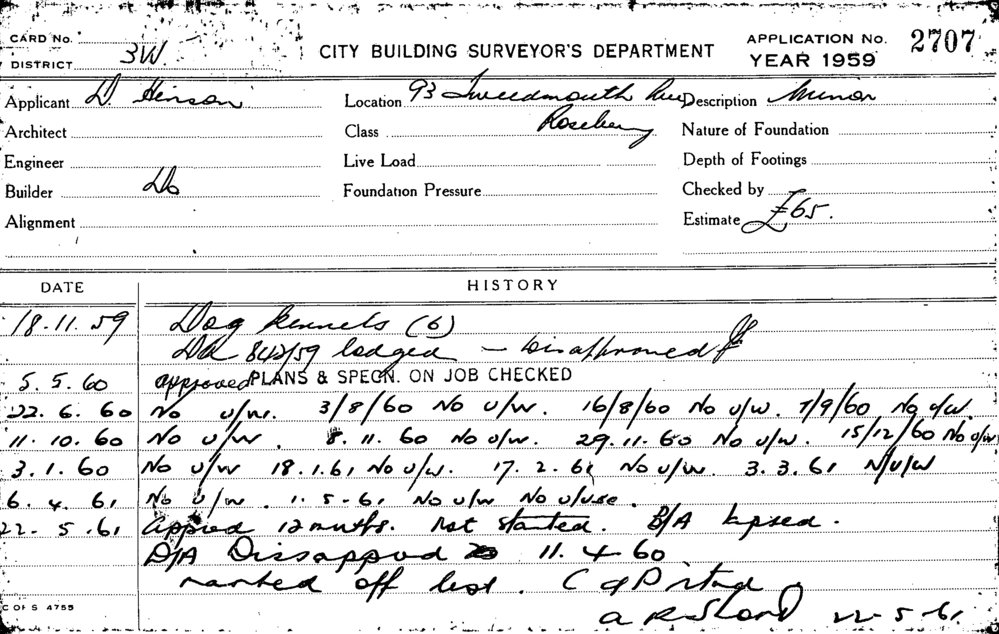 CARD No.
DISTRICT 3W.
CITY BUILDING SURVEYOR'S DEPARTMENT
APPLICATION No. 2707
YEAR 1959
Applicant D. Hinson Location 93 Tweedmouth Ave Description Minor
Architect Class Rosebery Nature of Foundation
Engineer Live Load Depth of Footings
Builder Do Foundation Pressure Checked by
Alignment Estimate £65.
DATE HISTORY
18.11.59 Dog kennels (6)
DA 842/59 lodged – Disapproved
5.5.60 approved PLANS & SPECN. ON JOB CHECKED
22.6.60 No u/w. 3/8/60 No u/w. 16/8/60 No u/w. 7/9/60 No u/w.
11.10.60 No u/w. 8.11.60 No u/w. 29.11.60 No u/w. 15/12/60 No u/w
3.1.60 No u/w 18.1.61 No u/w. 17.2.61 No u/w. 3.3.61 N/u/w
6.4.61 No u/w. 1.5-61 No u/w No u/use.
22.5.61 Approved 12 months. Not started. B/A lapsed.
D/A Dissapprod 11.4.60
marked off list. C of P
22-5-61
C OF S 4755